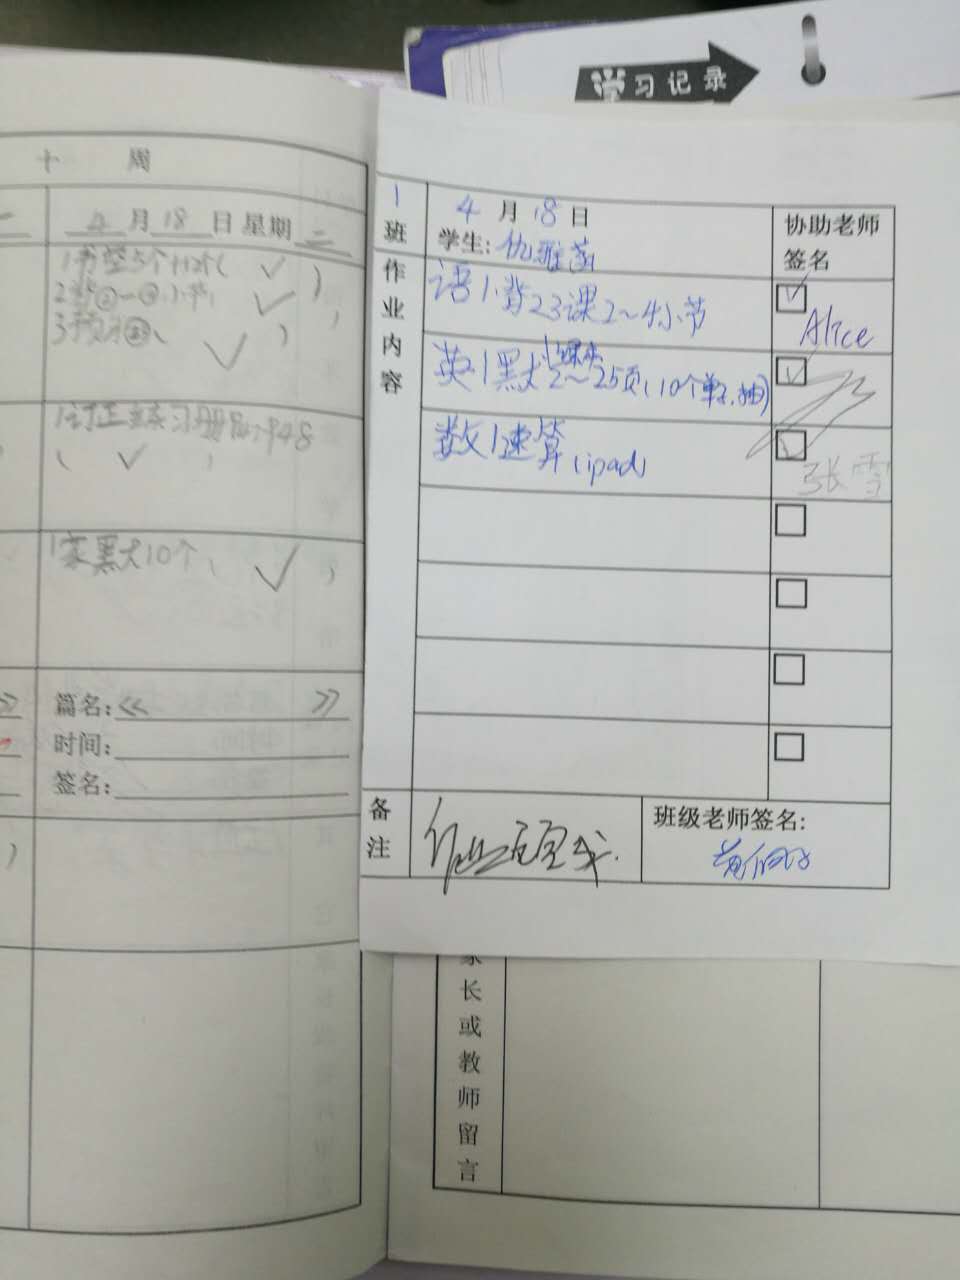 学习记录
十 周
4月18日星期二
1书空5个
3预习
1订正练习册P47.P48
1家默10个
篇名:《 》
时间:
签名:
1班
4月18日
学生:仇雅茜
协助老师签名
作业内容
语1背23课2~4小节
Alice
英1默2~25页(10个单,抽)
数1速算(ipad)
张雪
备注
作业
班级老师签名:
家长或教师留言